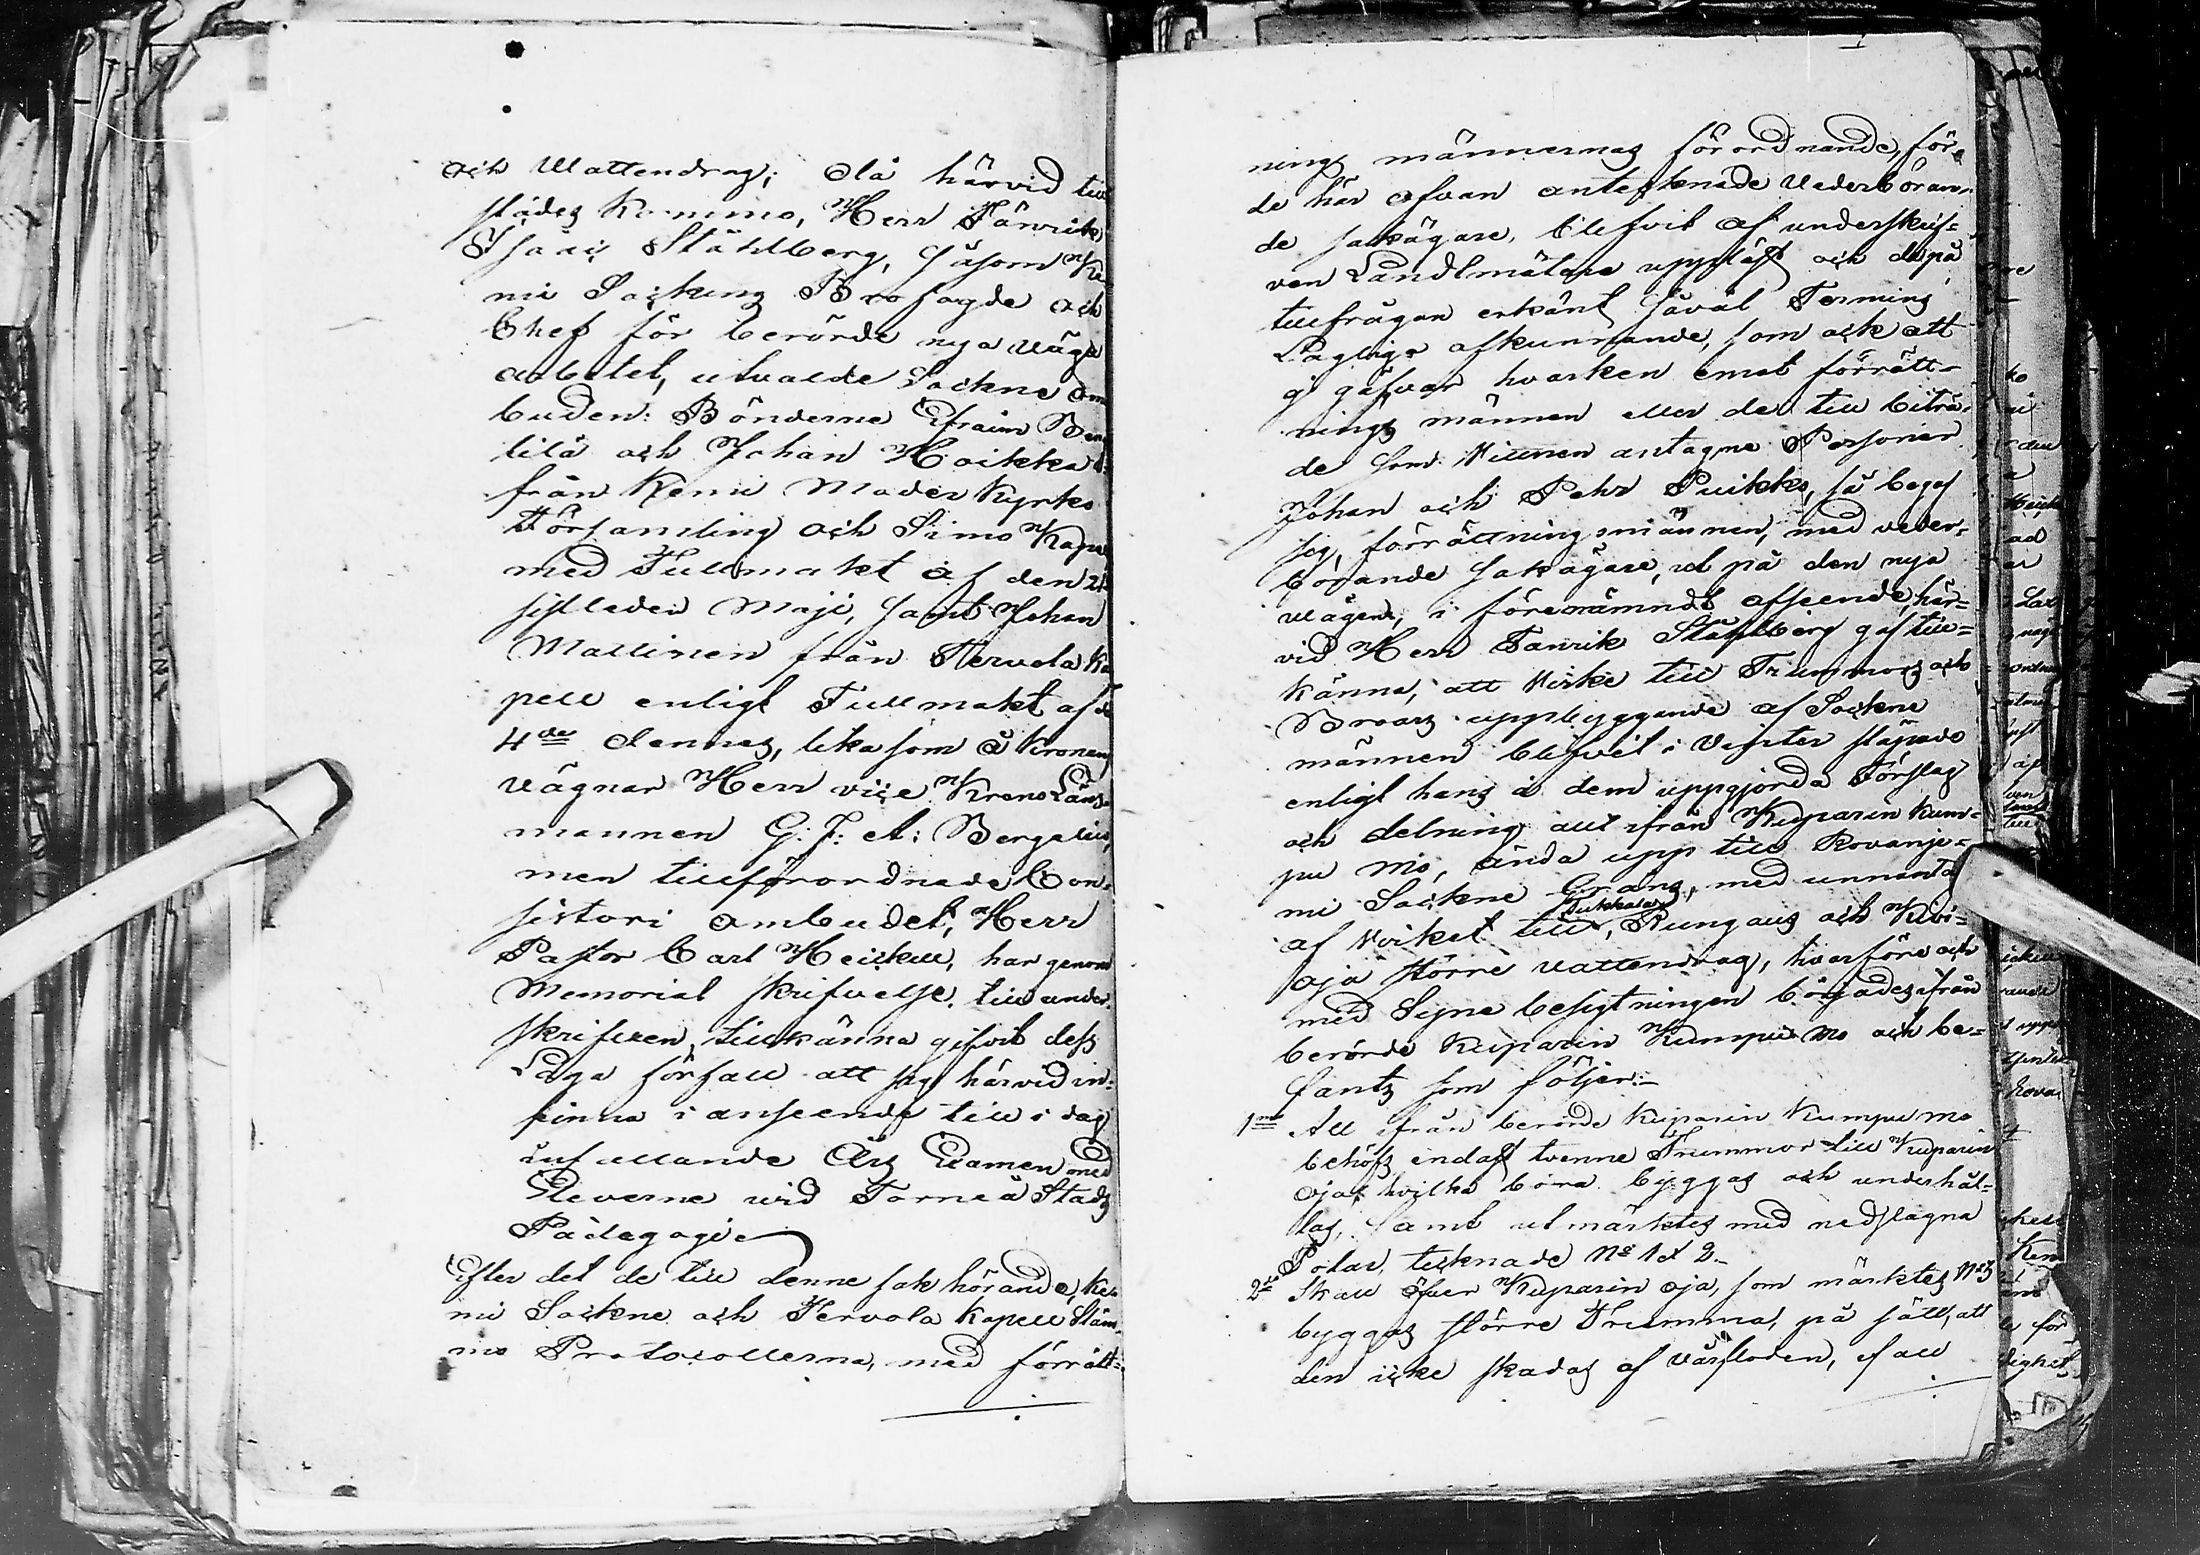 och Wattendrag; då härvid till
städes kommo, Herr Fänrik
Isaac Ståhlberg, såsom Ke
mi Sockens Brofogde och
Chef för berörde nya vägs
arbetet, utvalde Sockne Om
buden: Bönderne Efraim
lilä och Johan Hoikka
från Kemi Moder Kyrko
Församling och Simo Kapel
med Fullmakt af den 21
sistleden Maji, samt Johan
Mattinen från Tervola Ka
pell enligt Fullmakt af d
4de dennes, lika som å Kronans
vägnar Herr vice Krono Läns-
mannen G: J: A: Bergelius,
men tillförordnade Con-
sistori ombudet, Herr
Pastor Carl Heickell, har genom
Memorial skrifvelse, till under-
skrifven, tillkänna gifvit dess
Laga förfall att sig härvid in-
finna i anseende till i dag
infallande Års Examen med
Eleverne vid Torneå Stads
Pädagogie
Efter det de till denne sak hörande, Ke-
mi Sockne och Tervola Kapell Stäm-
mo Protocollerna, med förrätt-
nings männernas förordnande, för
de här ofvan antecknade vederböran-
de sakägare, blifvit af underskrif-
ven Landtmätare uppläst och de på
tillfrågan erkänt såväl Termins
Lagliga afkunnande, som ock att
ej gäfvor hvarken emot förrätt-
nings männen eller de till biträ-
de som Männen antagne Personer
Johan och Pehr Puikko, så begaf
sig, förrättningsmännen, med veder-
börande sakägare, ut på den nya
vägen, i förenämndt afseende, här-
vid Herr Fänrik Ståhlberg gaf till-
känna, att Virke till Trummors och
Broars uppbyggande af Sockne
männen blifvit i Vinter släpade
enligt hans å dem uppgjorda Förslag
och delning allt ifrån Kuparin kum-
pu mo, ända upp till Rovanje-
mi Sockne Gräns, med unnantag
af Virket till Tukkalas, Rungaus och Kivi-
oja större vattendrag, hvarföre och
med Syne besigtningen börjades ifrån
berörde Kuparin Kumpu mo och be-
fants som följer:-
1mo All ifrån berörde Kuparin Kumpu mo
behöfs endast tvenne Trummor till Kuparin
oja, hvilka böra byggas och underhål-
las, samt utmärktes med nedslagna
Pålar, tecknade No 1 et 2.-
2do Skall öfver Kuparin oja, som märktes No 3
byggas större Trumma, på sätt, att
den icke skadas af vårfloden, efall